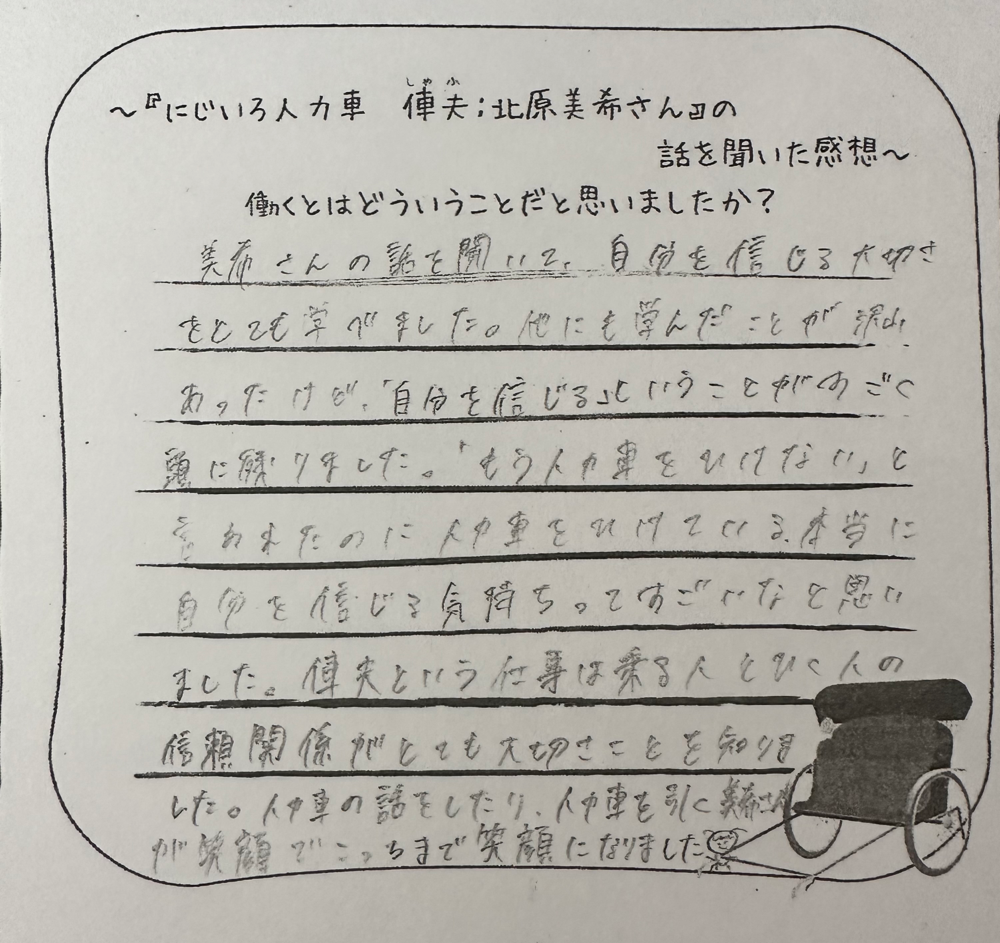 しゃふ
~『にじいろ人力車 俥夫;北原美希さん』の
話を聞いた感想~
働くとはどういうことだと思いましたか?
美希さんの話を聞いて、自分を信じる大切さ
をとても学べました。他にも学んだことが沢山
あったけど、「自分を信じる」ということがすごく
頭に残りました。「もう人力車をひけない」と
言われたのに人力車をひけている、本当に
自分を信じる気持ちってすごいなと思い
ました。俥夫という仕事は乗る人とひく人の
信頼関係がとても大切さことを知りま
した。人力車の話をしたり、人力車を引く美希さん
が笑顔でこっちまで笑顔になりました